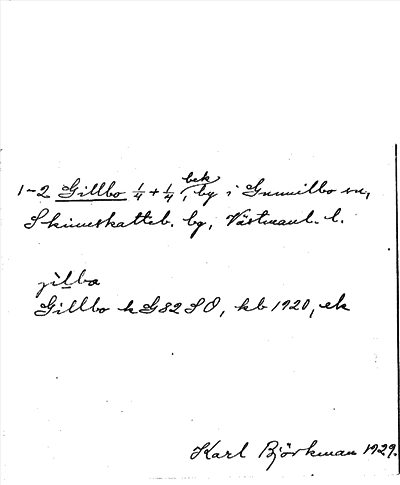 1-2 Gillbo 1/4 + 1/4, bek by i Gunnilbo sn,
Skinnskatteb. bg, Västmanl. l.
jilba
Gillbo k G82 SO, kb 1920, ek
Karl Björkman 1929.